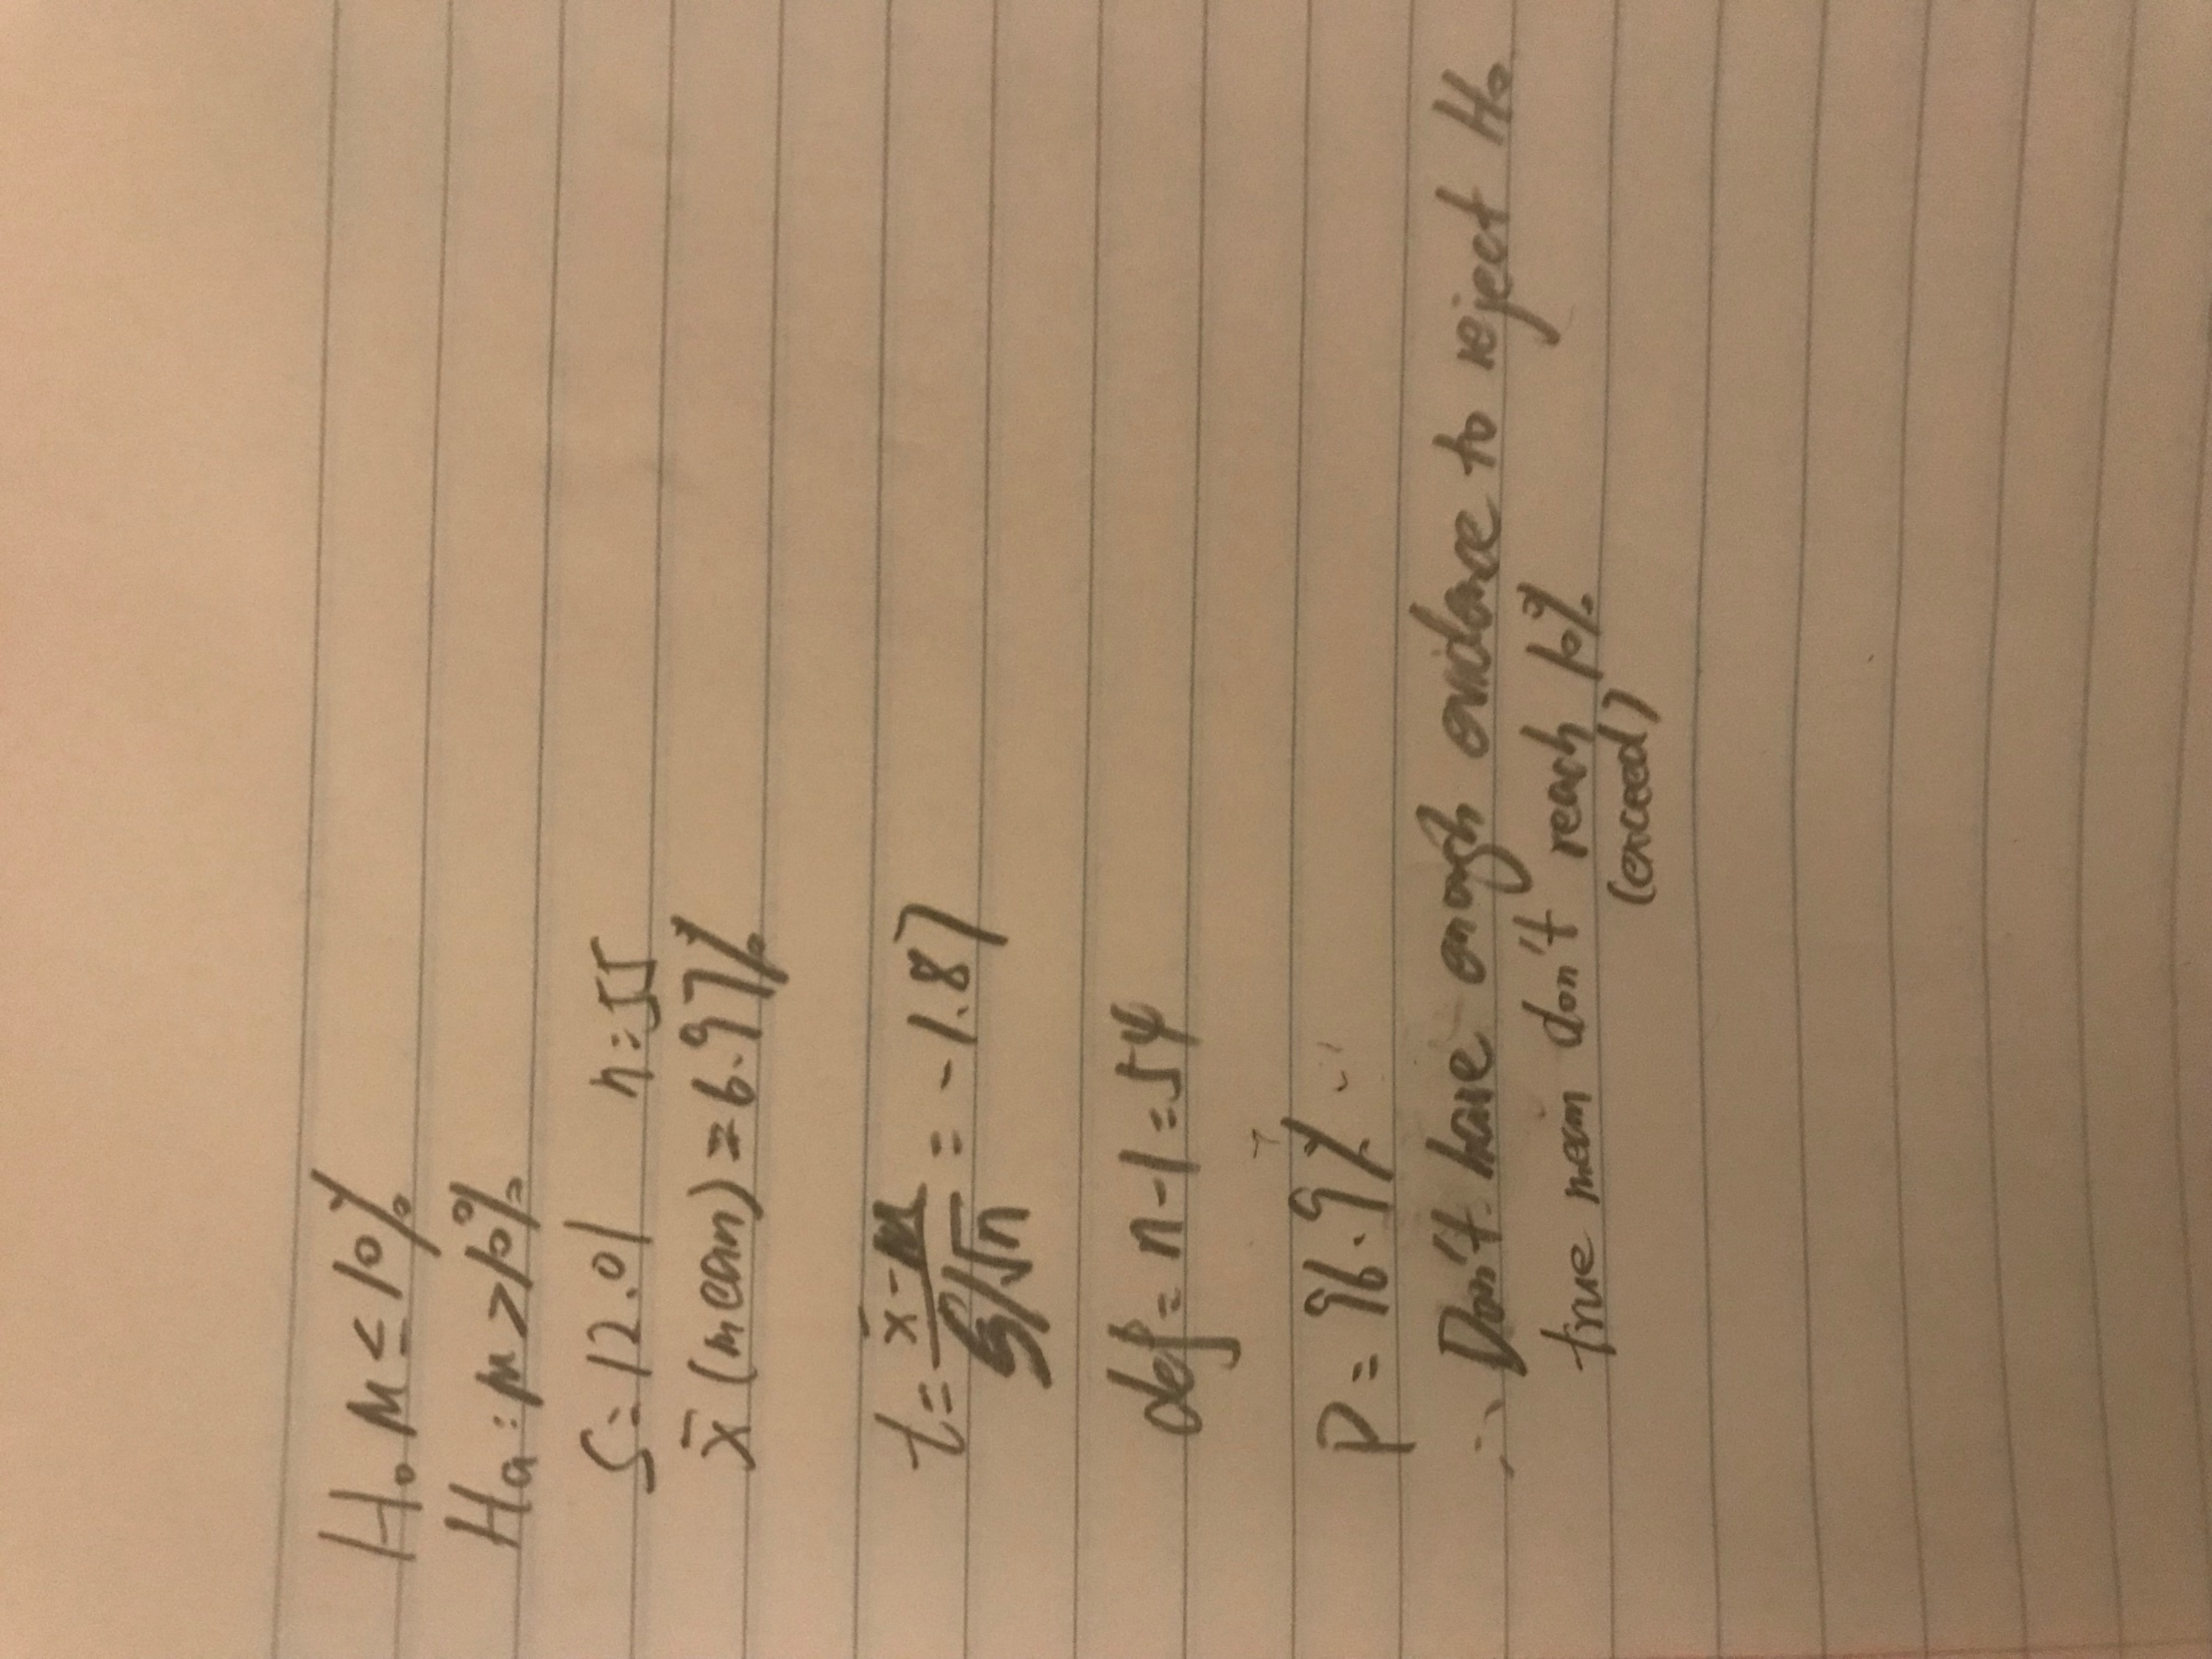 H₀ μ ≤ 10%
Ha: μ > 10%
S = 12.01 n = 55
x̄ (mean) = 6.97%
t = x̄ - μ / S/√n = -1.87
def = n - 1 = 54
P = 96.9%
∴ Don't have enough evidence to reject H₀
true mean don't reach 10%
(exceed)